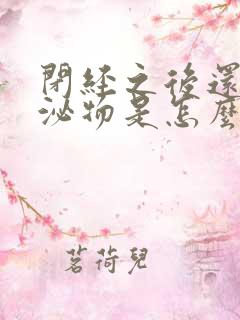 閉經之後還
泌物是怎麼
茗荷兒